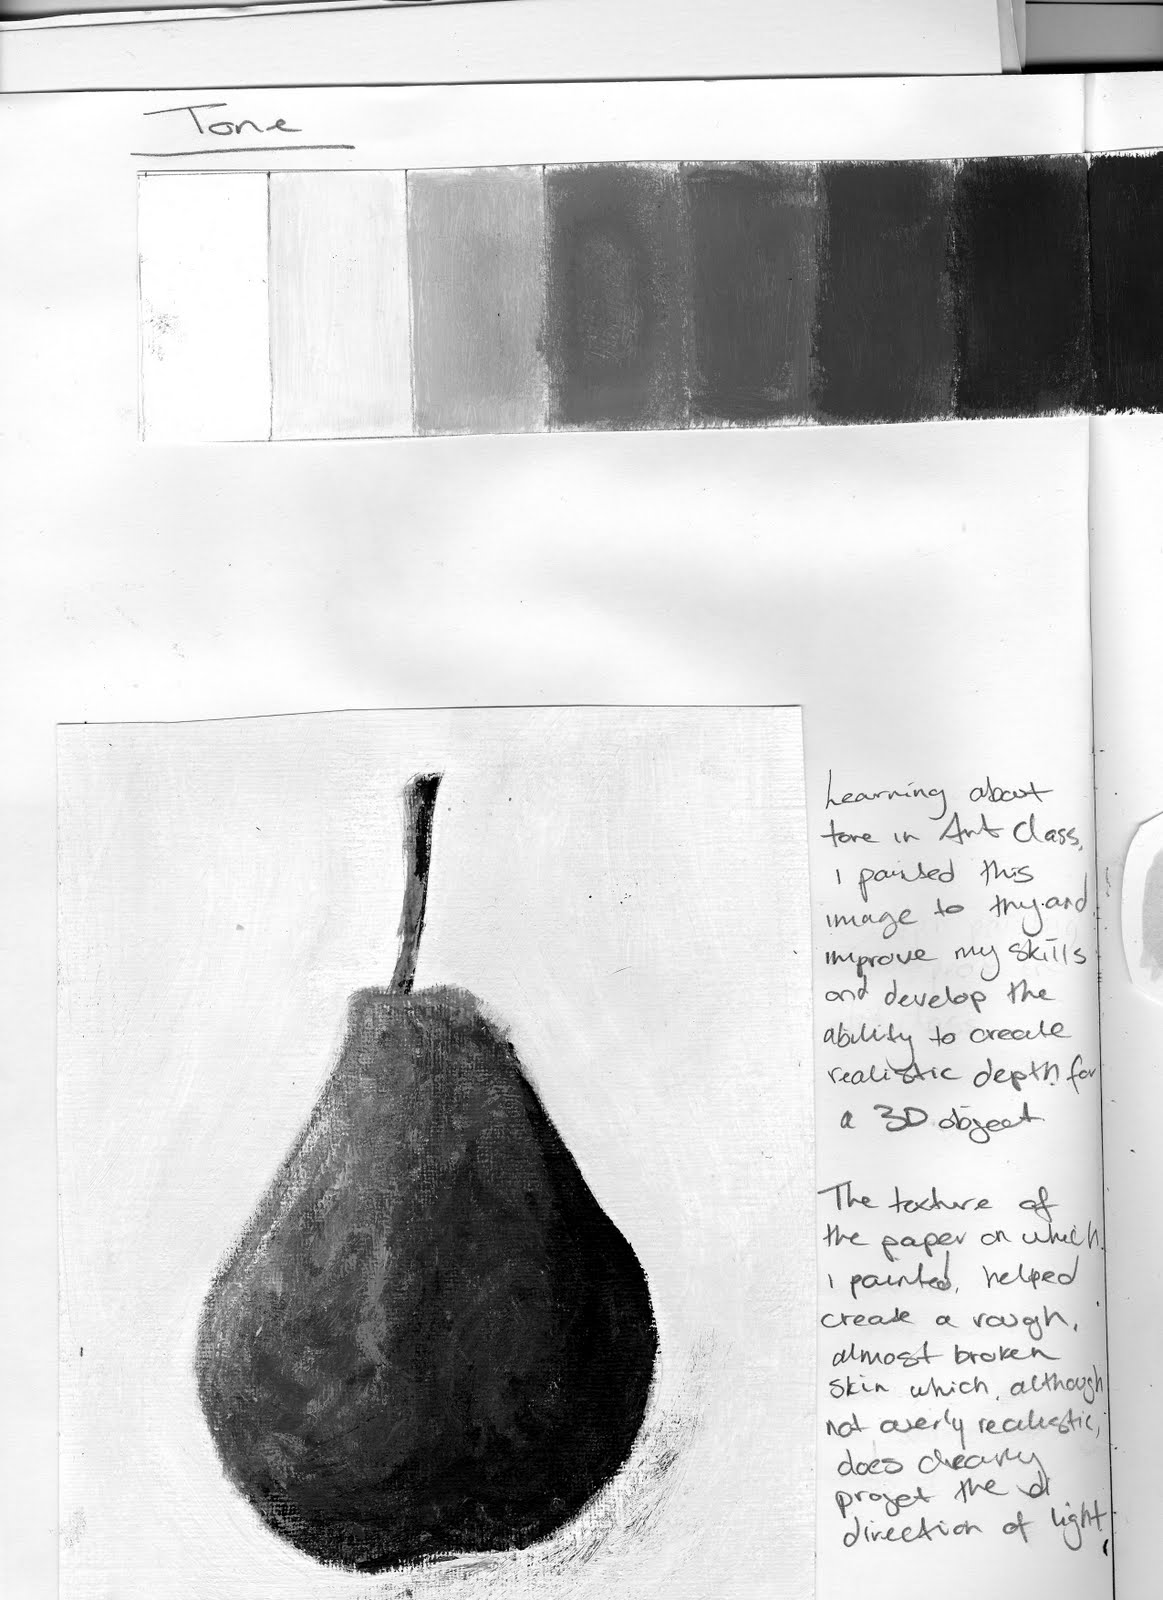 Tone
Learning about
tone in Art Class,
I painted this
image to try and
improve my skills
and develop the
ability to create
realistic depth for
a 3D object
The texture of
the paper on which
I painted, helped
create a rough,
almost broken
skin which, although
not overly realistic,
does clearly
projet the di
direction of light